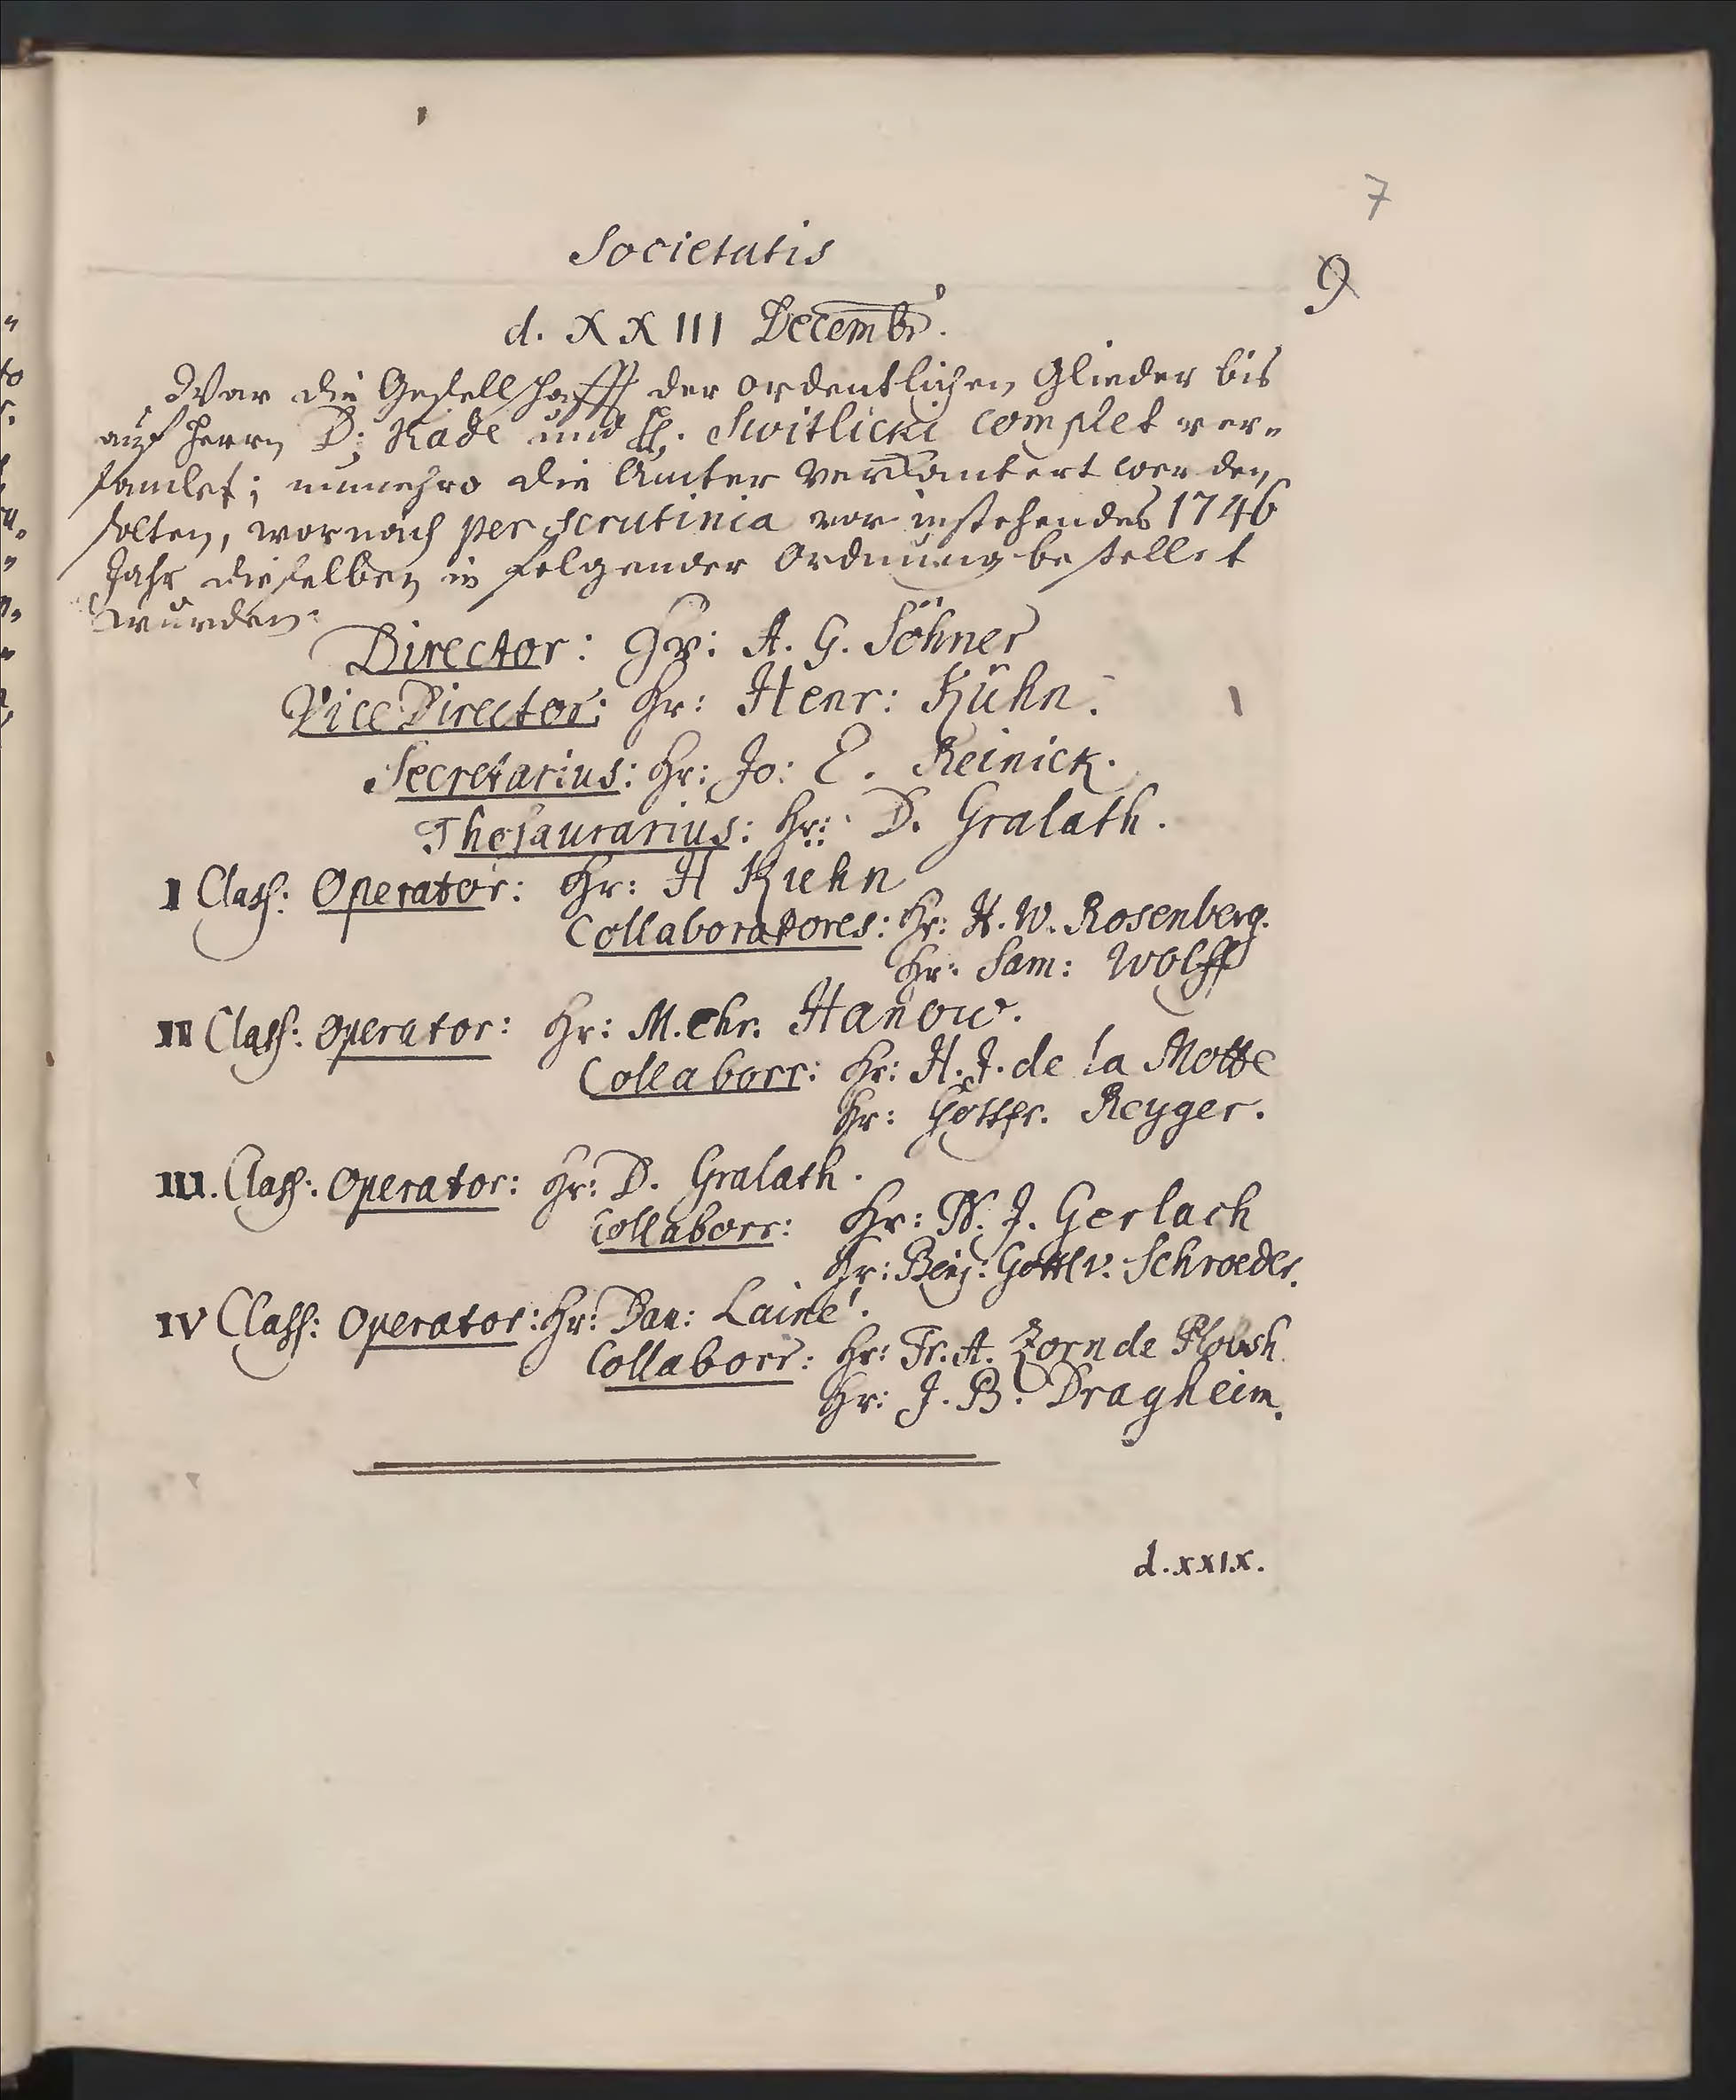 7
Societatis
9
d. XXIII Decembr.
War die Gesellschafft der ordentlichen Glieder bis
auf Herrn D: Kade und H. Switlicki complet ver-
samlet; nunmehro die Ämter verlautert werden
solten, wornach per scrutinia vor instehendes 1746
Jahr dieselben in folgender Ordnung bestellet
wurden.
Director: Hr: A. G. Söhner
Vice Director: Hr: Henr: Kühn.
Secretarius: Hr: Jo: E. Reinick.
Thesaurarius: Hr: D. Gralath.
I Class: Operator: Hr: H Kuehn
Collaboratores: Hr: H. W. Rosenberg.
Hr: Sam: Wolff
II Class: Operator: Hr: M. Chr. Hanow.
Collaborr: Hr: H. J. de la Motte
Hr: Gottfr. Reyger.
III. Class: Operator: Hr: D. Gralath.
Collaborr: Hr: N. J. Gerlach
Hr: Benj: Gottl v. Schroeder.
IV Class: Operator: Hr: Dan: Lainé.
Collaborr: Hr: Fr. A. Zorn de Plobsh.
Hr: J. B. Dragheim.
d. XXIX.